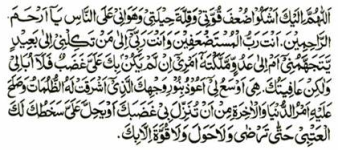 اَللّٰهُمَّ اِلَيْكَ اَشْكُوْ ضُعْفَ قُوَّتِيْ وَقِلَّةَ حِيْلَتِيْ وَهَوَانِيْ عَلَى النَّاسِ يَا اَرْحَمَ
الرَّاحِمِيْنَ. اَنْتَ رَبُّ الْمُسْتَضْعَفِيْنَ وَاَنْتَ رَبِّيْ اِلٰى مَنْ تَكِلُنِيْ اِلٰى بَعِيْدٍ
يَتَجَهَّمُنِيْ اَمْ اِلٰى عَدُوٍّ مَلَّكْتَهُ اَمْرِيْ اِنْ لَمْ يَكُنْ بِكَ عَلَيَّ غَضَبٌ فَلَا اُبَالِيْ
وَلٰكِنْ عَافِيَتُكَ. هِيَ اَوْسَعُ لِيْ اَعُوْذُ بِنُوْرِ وَجْهِكَ الَّذِيْ اَشْرَقَتْ لَهُ الظُّلُمَاتُ وَصَلَحَ
عَلَيْهِ اَمْرُ الدُّنْيَا وَالْاٰخِرَةِ مِنْ اَنْ تُنَزِّلَ بِيْ غَضَبَكَ اَوْ يَحِلَّ عَلَيَّ سَخَطُكَ لَكَ
الْعُتْبٰى حَتّٰى تَرْضٰى وَلَا حَوْلَ وَلَا قُوَّةَ اِلَّا بِكَ.